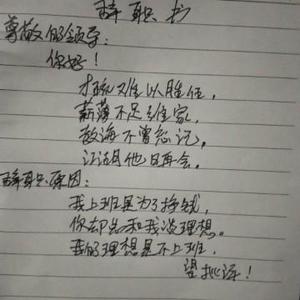 辞职书
尊敬的领导：
你好！
才疏难以胜任，
薪薄不足维家，
教诲不曾忘记，
江湖他日再会。
辞职原因：
我上班是为了挣钱，
你却总和我谈理想。
我的理想是不上班，
望批准！